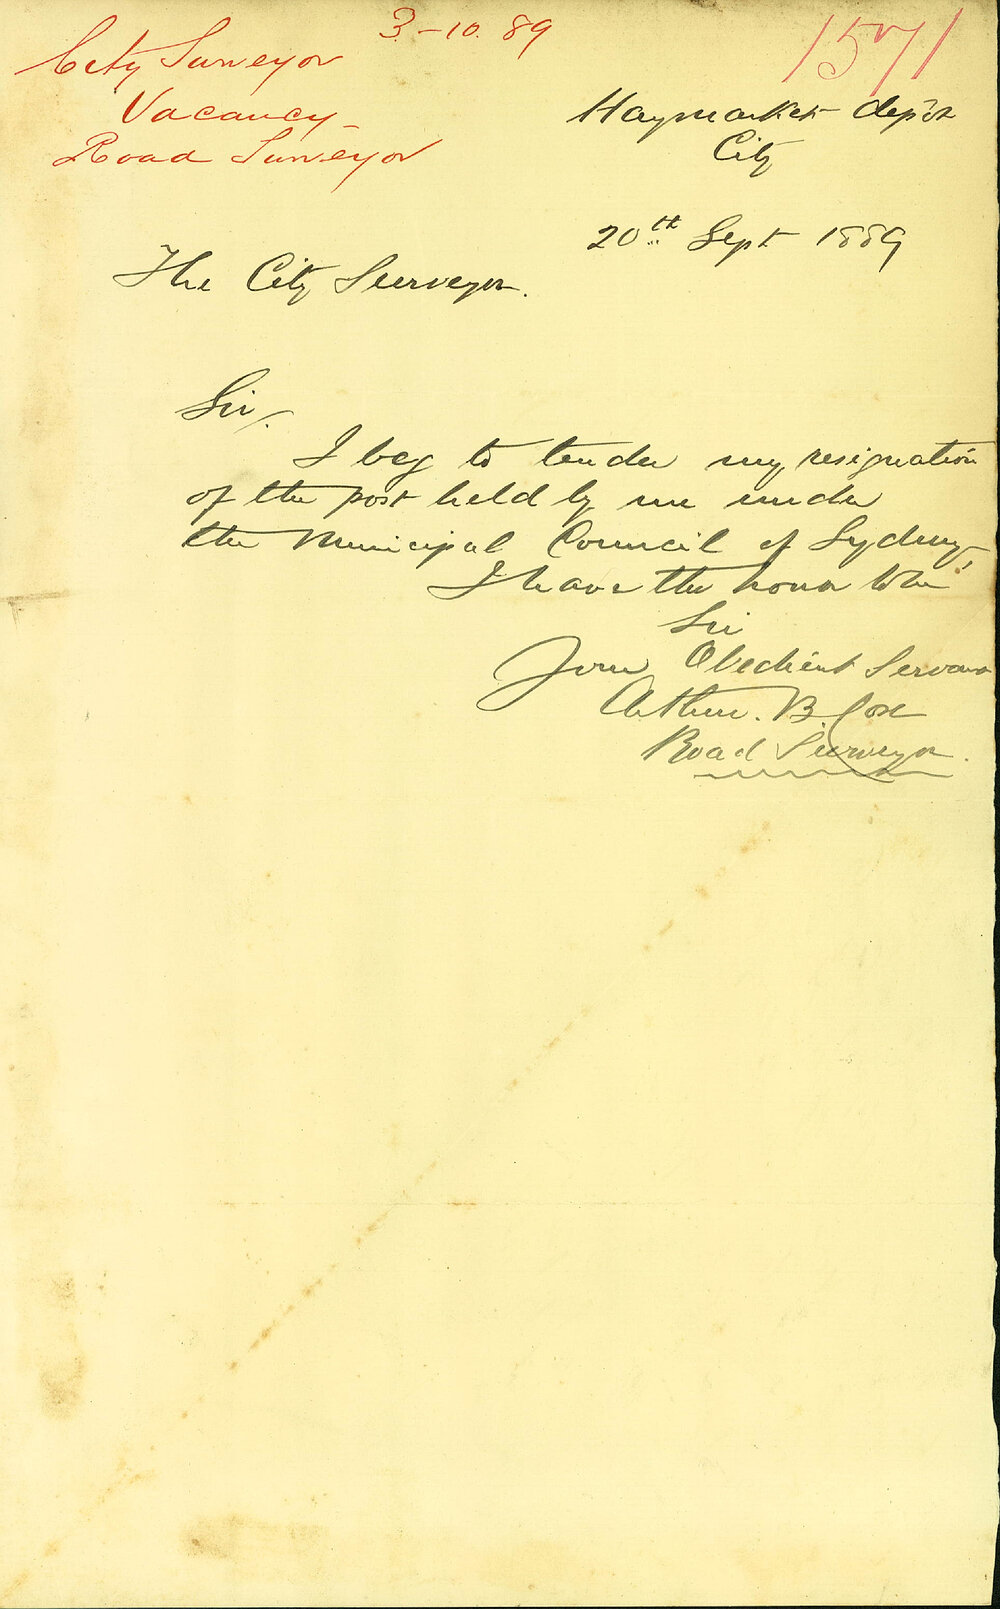 3-10.89
1571
City Surveyor
Vacancy
Road Surveyor
Haymarket depôt
City
20th Sept 1889
The City Surveyor.
Sir,
I beg to tender my resignation
of the post held by me under
the Municipal Council of Sydney,
I have the honor to be
Sir
Your Obedient Servant
Arthur. B. Cox
Road Surveyor.